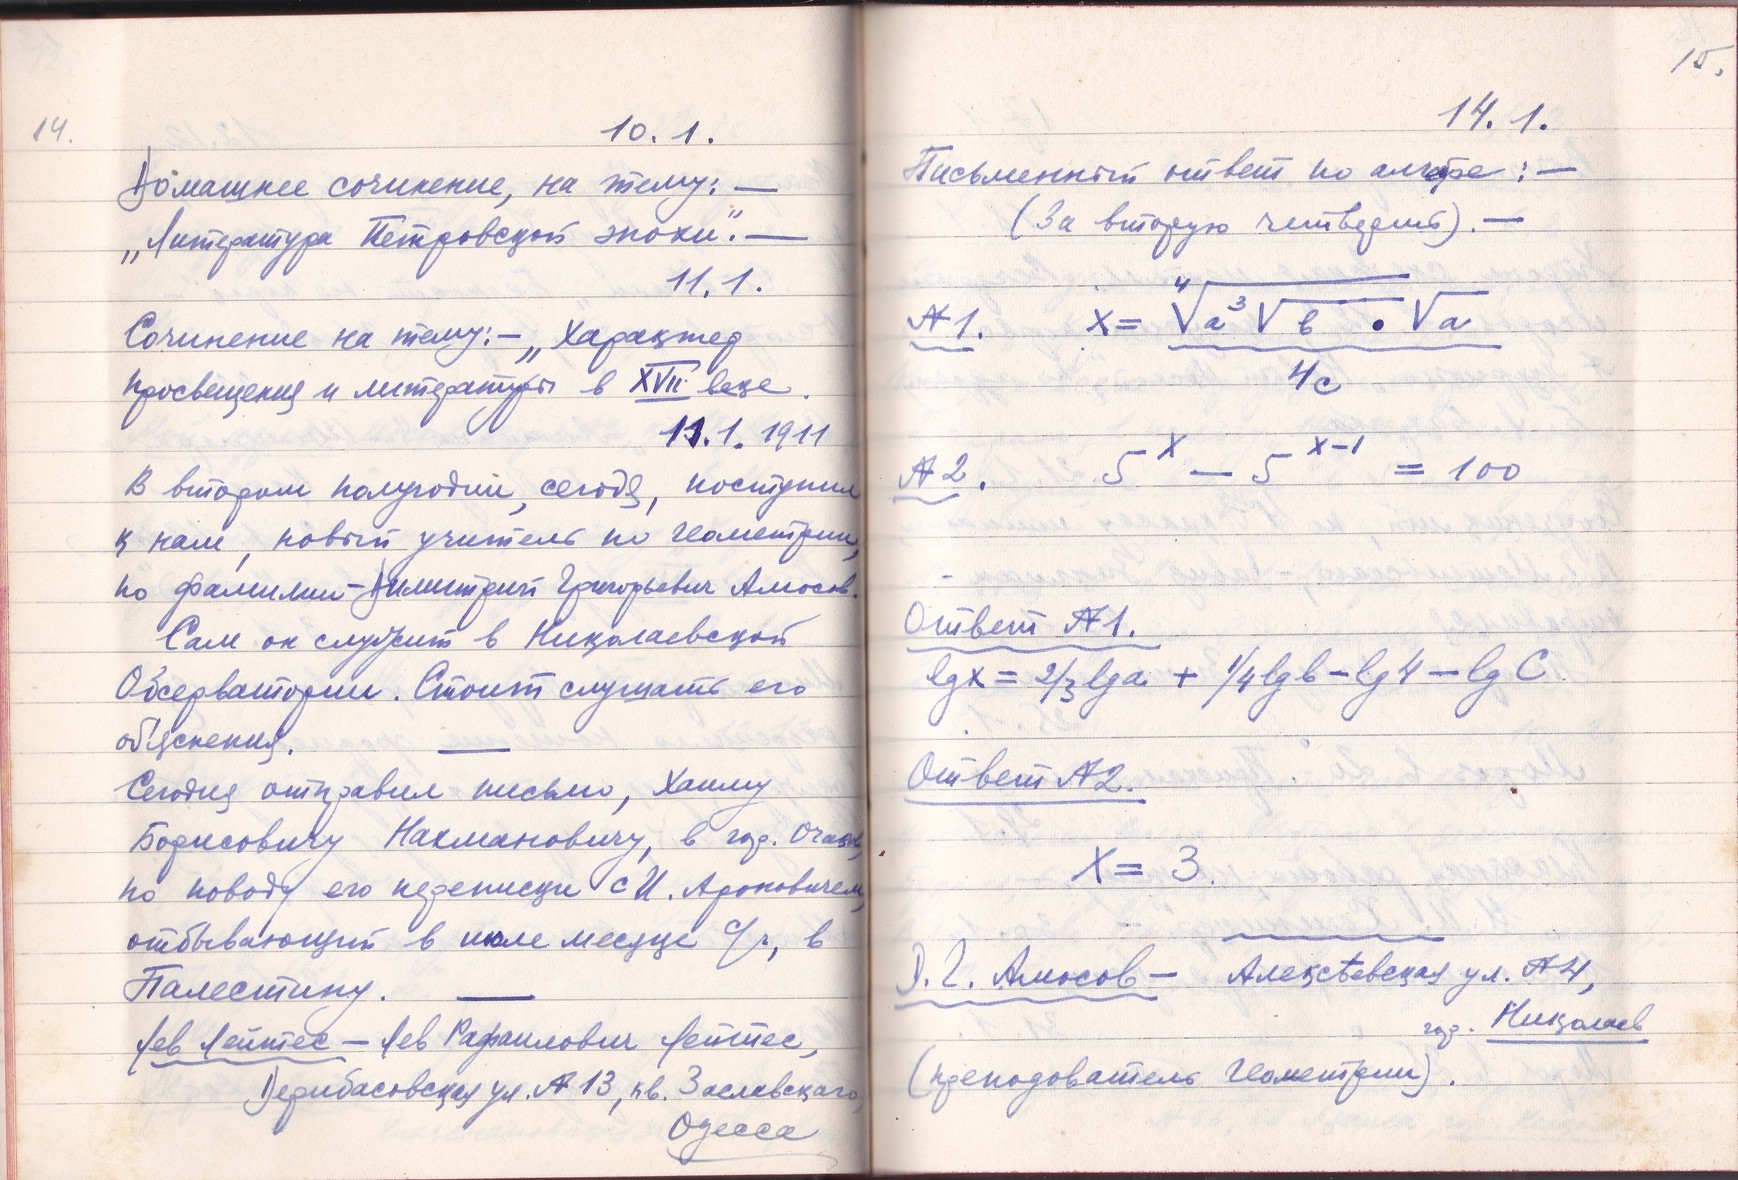 14.
10. 1.
Домашнее сочинение, на тему: —
„Литература Петровской эпохи". —
11. 1.
Сочинение на тему: — „Характер
просвещения и литературы в XVII веке.
11. 1. 1911
В втором полугодии, сегодя, поступил
к нам, новый учитель по геометрии,
по фамилии — Димитрий Григорьевич Амосов.
Сам он служит в Николаевской
Обсерватории. Стоит слушать его
объяснения. —
Сегодня отправил письмо, Хаиму
Борисовичу Нахмановичу, в гор. Очаков,
по поводу его переписки с И. Ароновичем,
отбывающий в июле месяце с/г, в
Палестину. —
Лев Лейтес — Лев Рафаилович Лейтес,
Дерибасовская ул. № 13, кв. Заславскаго,
Одесса
15.
14. 1.
Письменный ответ по алгебре: —
(За вторую четверть). —
№ 1. x = ⁴√a ³√b • √a
4c
№ 2. 5^x — 5^x-1 = 100
Ответ № 1.
lgx = 2/3 lga + 1/4 lgb — lg4 — lgC
Ответ № 2.
X = 3.
Д. Г. Амосов — Алексѣевская ул. № 4,
гор. Николаев
(преподаватель геометрии).